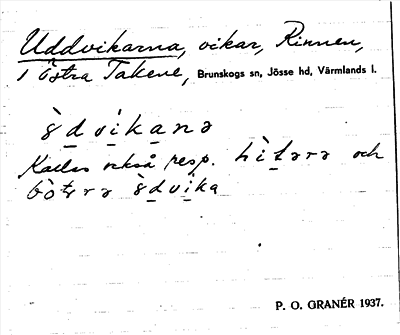 Uddvikarna, vikar, Rinnen,
i Östra Takene, Brunskogs sn, Jösse hd, Värmlands l.
ỳd vikanə
Kallas också resp. hìtərə och
bòtrə ỳdvika
P. O. GRANÉR 1937.